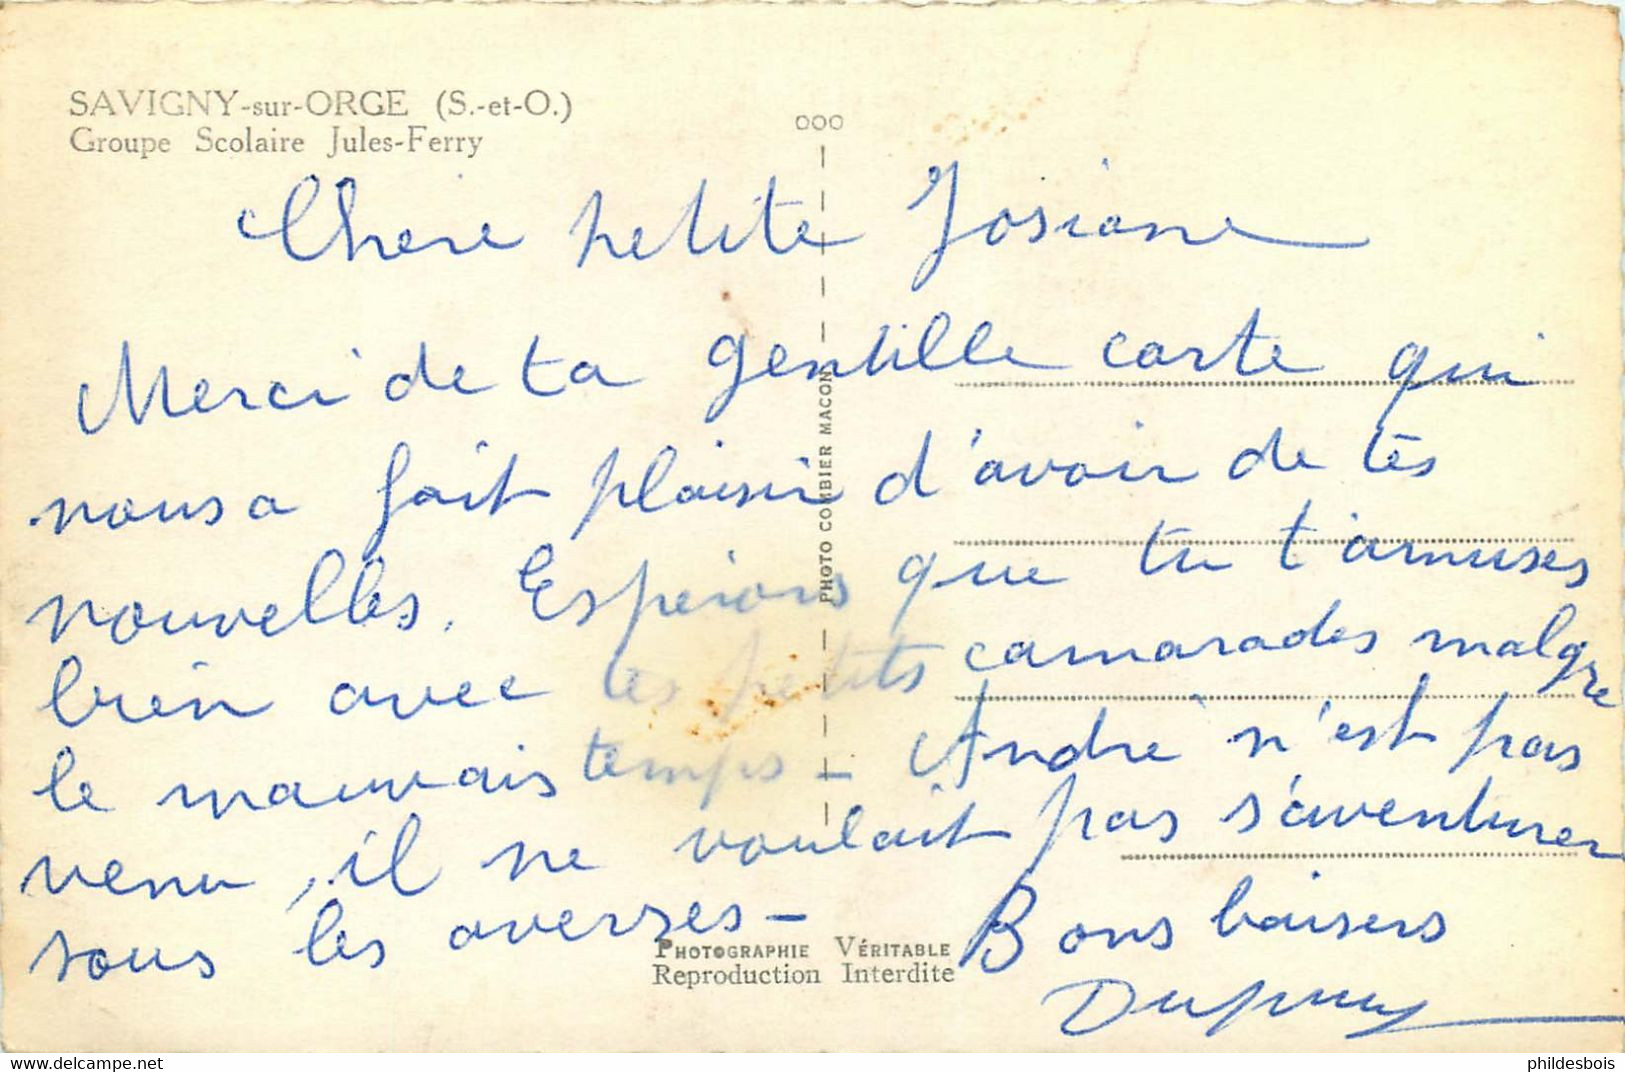 SAVIGNY-sur-ORGE (S.-et-O.)
Groupe Scolaire Jules-Ferry
ooo
Chère petite Josiane
Merci de ta gentille carte qui
nous a fait plaisir d'avoir de tes
nouvelles. Espérons que tu t'amuses
bien avec tes petits camarades malgré
le mauvais temps - André n'est pas
venu, il ne voulait pas s'aventurer
sous les averses -
Bons baisers
Dupuy
PHOTO COMBIER MACON
PHOTOGRAPHIE VÉRITABLE
Reproduction Interdite
www.delcampe.net
phildesbois